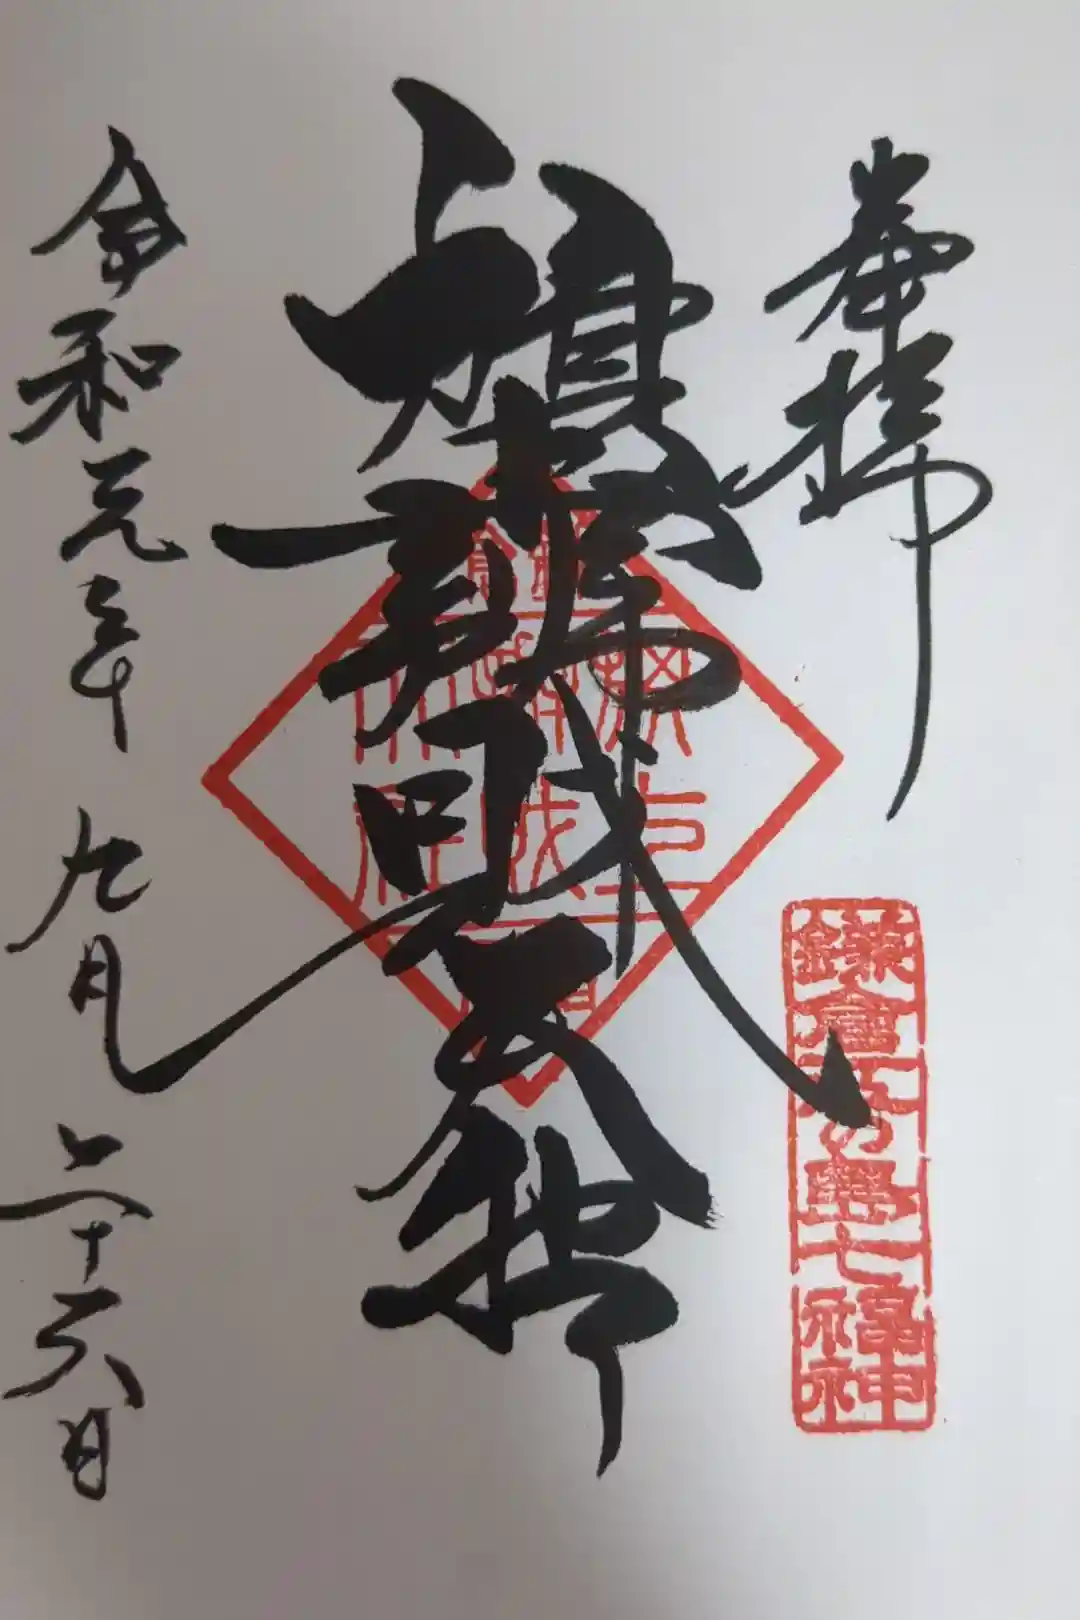 奉拝
鎌倉江の島七福神
旗上辨財天社
令和元年 九月 二十六日